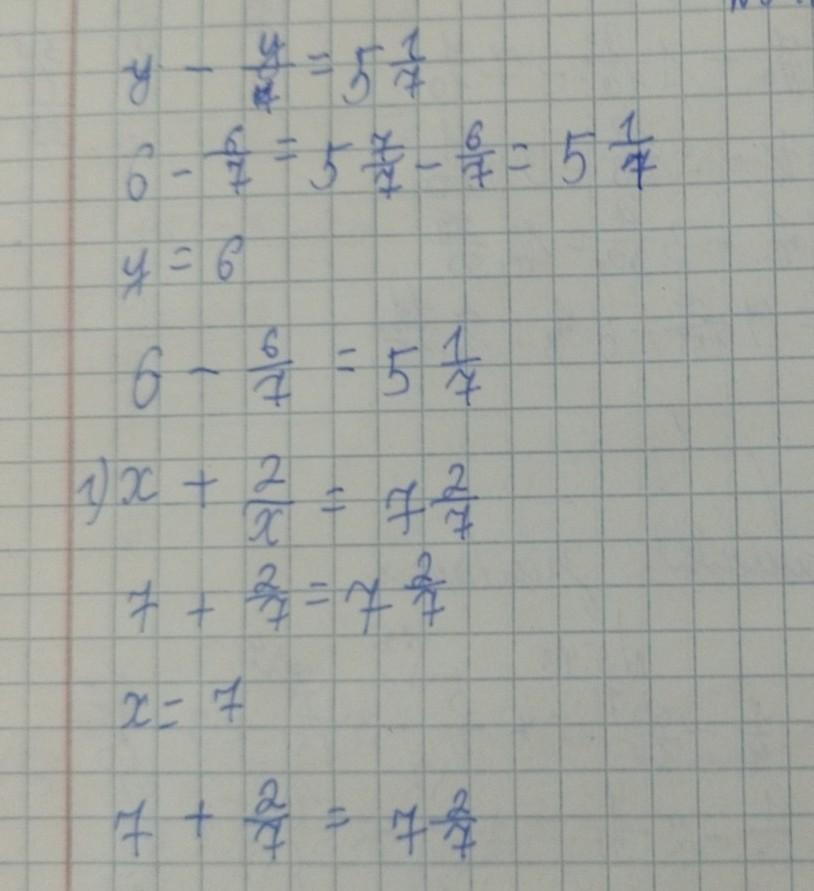 y - y/7 = 5 1/7
6 - 6/7 = 5 7/7 - 6/7 = 5 1/7
y = 6
6 - 6/7 = 5 1/7
1) x + 2/x = 7 2/7
7 + 2/7 = 7 2/7
x = 7
7 + 2/7 = 7 2/7